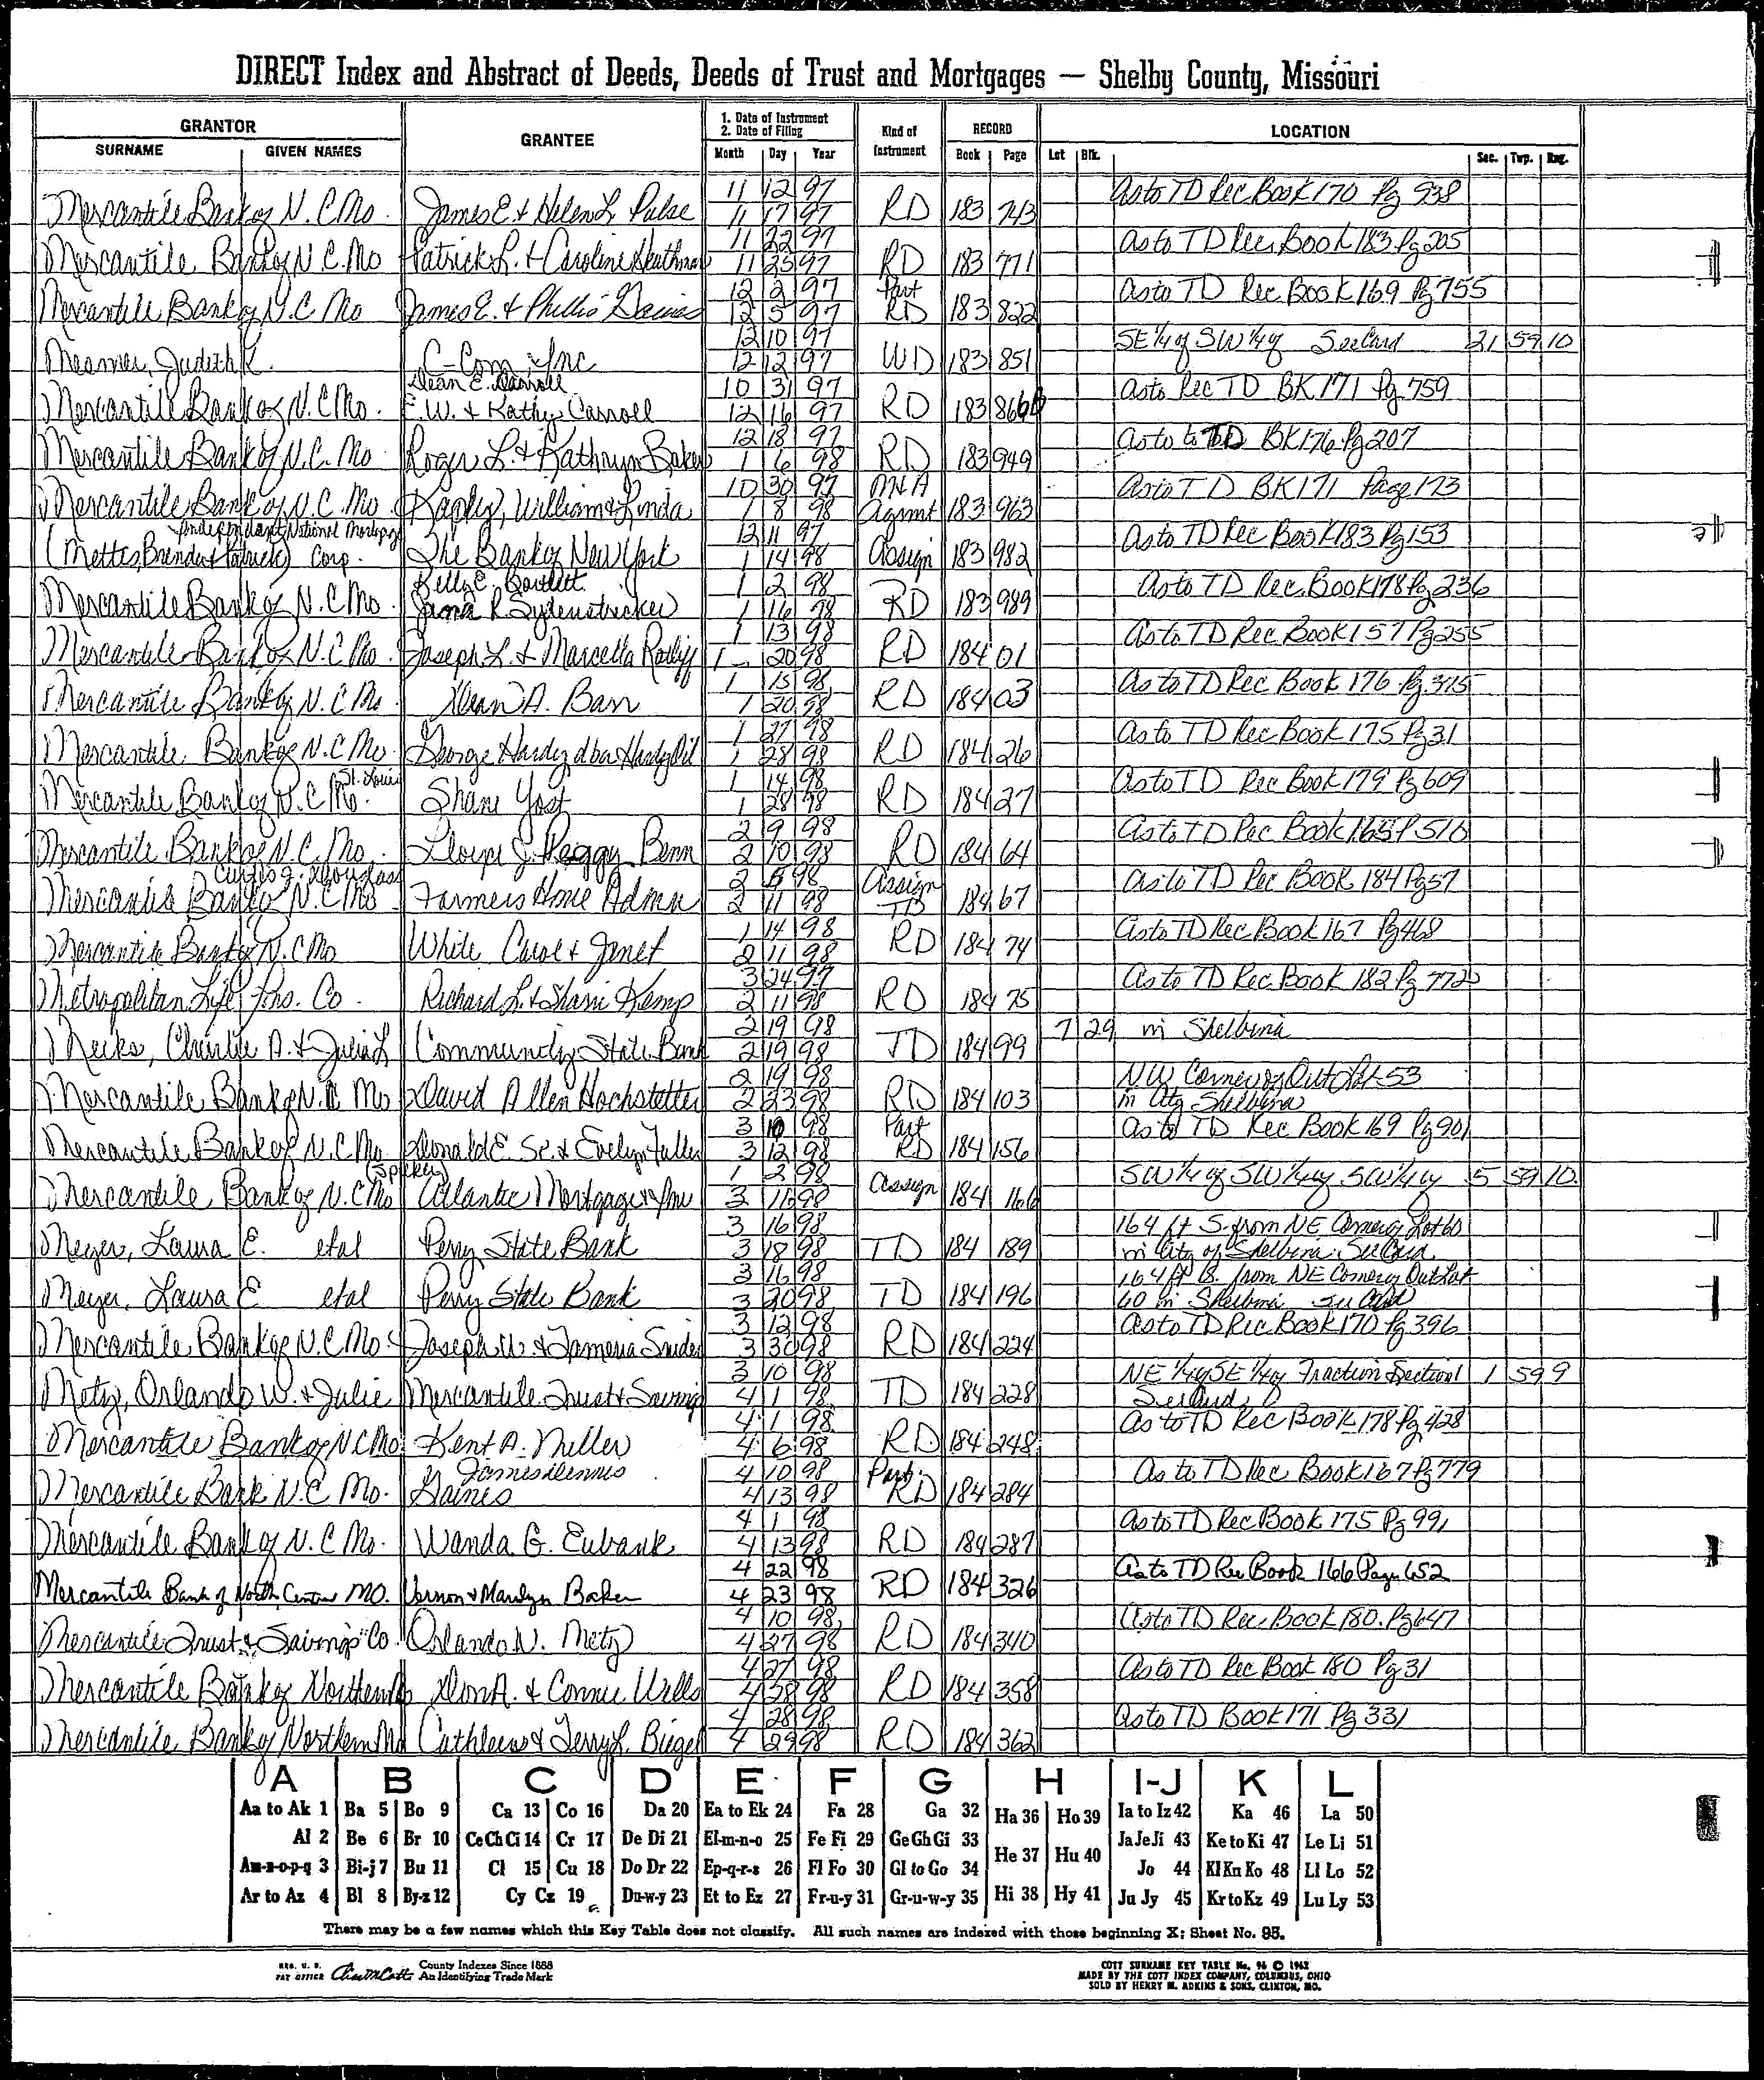 DIRECT Index and Abstract of Deeds, Deeds of Trust and Mortgages — Shelby County, Missouri
GRANTOR GRANTEE 1. Date of Instrument 2. Date of Filing Kind of Instrument RECORD LOCATION
SURNAME GIVEN NAMES Month Day Year Book Page Lot Blk. Sec. Twp. Rng.
11 12 97 As to TD Rec Book 170 Pg 938
Mercantile Bank of N.C. Mo. James E. & Helen L. Pulse 11 17 97 RD 183 743
11 22 97 As to TD Rec Book 183 Pg 205
Mercantile Bank of N.C. Mo Patrick L. & Caroline 11 25 97 RD 183 771
12 2 97 Part As to TD Rec Book 169 Pg 755
Mercantile Bank of N.C. Mo James E. & Phillis Gaines 12 5 97 RD 183 822
12 10 97 SE 1/4 of SW 1/4 of See Card 21 59 10
Judith K. C-Com, Inc 12 12 97 WD 183 851
Dean E. Carroll 10 31 97 As to Rec TD BK 171 Pg 759
Mercantile Bank of N.C. Mo. E.W. & Kathy Carroll 12 16 97 RD 183
12 18 97 As to to TD BK 176 Pg 207
Mercantile Bank of N.C. Mo Roger L. & Kathryn Baker 1 6 98 RD 183 949
10 30 97 As to TD BK 171 Page 173
Mercantile Bank of N.C. Mo William & Linda 1 8 98 Agmt 183 963
Independant National Mortgage 12 11 97 As to TD Rec Book 183 Pg 153
(Mettes, Brenda & Patrick) Corp. The Bank of New York 1 14 98 Assign 183 982
Kelly E. Bartlett 1 2 98 As to TD Rec. Book 178 Pg 236
Mercantile Bank of N.C. Mo. Jana R Sydenstricker 1 16 98 RD 183 989
1 13 98 As to TD Rec Book 157 Pg 255
Mercantile Bank of N.C. Mo. Joseph L. & Marcella Ratliff 1 20 98 RD 184 01
1 15 98 As to TD Rec Book 176 Pg 375
Mercantile Bank of N.C. Mo Dean A. Barr 1 20 98 RD 184 03
1 27 98 As to TD Rec Book 175 Pg 31
Mercantile Bank of N.C. Mo. George Hardy dba Hardy Oil 1 28 98 RD 184 26
St. Louis 1 14 98 As to TD Rec Book 179 Pg 609
Mercantile Bank of N.C. Mo. Shane Yost 1 28 98 RD 184 27
2 9 98 As to TD Rec Book 165 P 510
Mercantile Bank of N.C. Mo. J. Peggy Benn 2 10 98 RD 184 64
Curtis J. Douglass 2 5 98 Assign As to TD Rec Book 184 Pg 57
Mercantile Bank of N.C. Mo Farmers Home Admn 2 11 98 TD 184 67
1 14 98 As to TD Rec Book 167 Pg 468
Mercantile Bank of N.C. Mo White Carol & Janet 2 11 98 RD 184 74
3 24 97 As to TD Rec Book 182 Pg 772
Metropolitan Life Ins. Co. Richard L. & Sharri Kemp 2 11 98 RD 184 75
2 19 98 7 29 in Shelbina
Meeks, Charlie A. & Julia L Community State Bank 2 19 98 TD 184 99
2 19 98 NW Corner of Out Lot 53
Mercantile Bank of N.C. Mo David Allen Hochstetler 2 23 98 RD 184 103 in City Shelbina
3 10 98 Part As to TD Rec Book 169 Pg 901
Mercantile Bank of N.C. Mo Donald E. Sr. & Evelyn Fuller 3 12 98 RD 184 156
(Spieker) 1 2 98 SW 1/4 of SW 1/4 of SW 1/4 of 5 59 10
Mercantile Bank of N.C. Mo Atlantic Mortgage & Inv 3 11 98 Assign 184 166
3 16 98 164 ft S. from NE Corner of Lot 60
Meyer, Laura E. etal Perry State Bank 3 18 98 TD 184 189 in City of Shelbina. See Card
3 16 98 164 ft S. from NE Corner of Out Lot
Meyer, Laura E etal Perry State Bank 3 20 98 TD 184 196 60 in Shelbina See Card
3 12 98 As to TD Rec Book 170 Pg 396
Mercantile Bank of N.C. Mo. Joseph W. & Tameria Snider 3 30 98 RD 184 224
3 10 98 NE 1/4 of SE 1/4 of Fraction Section 1 1 59 9
Metz, Orlando W. & Julie Mercantile Trust & Savings 4 1 98 TD 184 228 See Card
4 1 98 As to TD Rec Book 178 Pg 428
Mercantile Bank of N.C. Mo. Kent A. Miller 4 6 98 RD 184 248
James Dennis 4 10 98 Part As to TD Rec Book 167 Pg 779
Mercantile Bank N.C. Mo. Gaines 4 13 98 RD 184 284
4 1 98 As to TD Rec Book 175 Pg 991
Mercantile Bank of N.C. Mo. Wanda G. Eubank 4 13 98 RD 184 287
4 22 98 As to TD Rec Book 166 Page 652
Mercantile Bank of North Central MO. Vernon & Marilyn Baker 4 23 98 RD 184 326
4 10 98 As to TD Rec Book 180 Pg 647
Mercantile Trust & Savings Co. Orlando W. Metz 4 27 98 RD 184 340
4 27 98 As to TD Rec Book 180 Pg 31
Mercantile Bank of Northern Mo Don A. & Connie Wells 4 28 98 RD 184 358
4 28 98 As to TD Book 171 Pg 331
Mercantile Bank of Northern Mo Cathleen & Terry L. Biegel 4 29 98 RD 184 362
A B C D E F G H I-J K L
Aa to Ak 1 Ba 5 Bo 9 Ca 13 Co 16 Da 20 Ea to Ek 24 Fa 28 Ga 32 Ha 36 Ho 39 Ia to Iz 42 Ka 46 La 50
Al 2 Be 6 Br 10 Ce Ch Ci 14 Cr 17 De Di 21 El-m-n-o 25 Fe Fi 29 Ge Gh Gi 33 He 37 Hu 40 Ja Je Ji 43 Ke to Ki 47 Le Li 51
Am-n-o-p-q 3 Bi-j 7 Bu 11 Cl 15 Cu 18 Do Dr 22 Ep-q-r-s 26 Fl Fo 30 Gl to Go 34 Jo 44 Kl Kn Ko 48 Ll Lo 52
Ar to Az 4 Bl 8 By-z 12 Cy Cz 19 Du-w-y 23 Et to Ez 27 Fr-u-y 31 Gr-u-w-y 35 Hi 38 Hy 41 Ju Jy 45 Kr to Kz 49 Lu Ly 53
There may be a few names which this Key Table does not classify. All such names are indexed with those beginning X: Sheet No. 95.
REG. U. S. PAT OFFICE County Indexes Since 1888 An Identifying Trade Mark
COTT SURNAME KEY TABLE No. 96 © 1962
MADE BY THE COTT INDEX COMPANY, COLUMBUS, OHIO
SOLD BY HENRY M. ADKINS & SONS, CLINTON, MO.